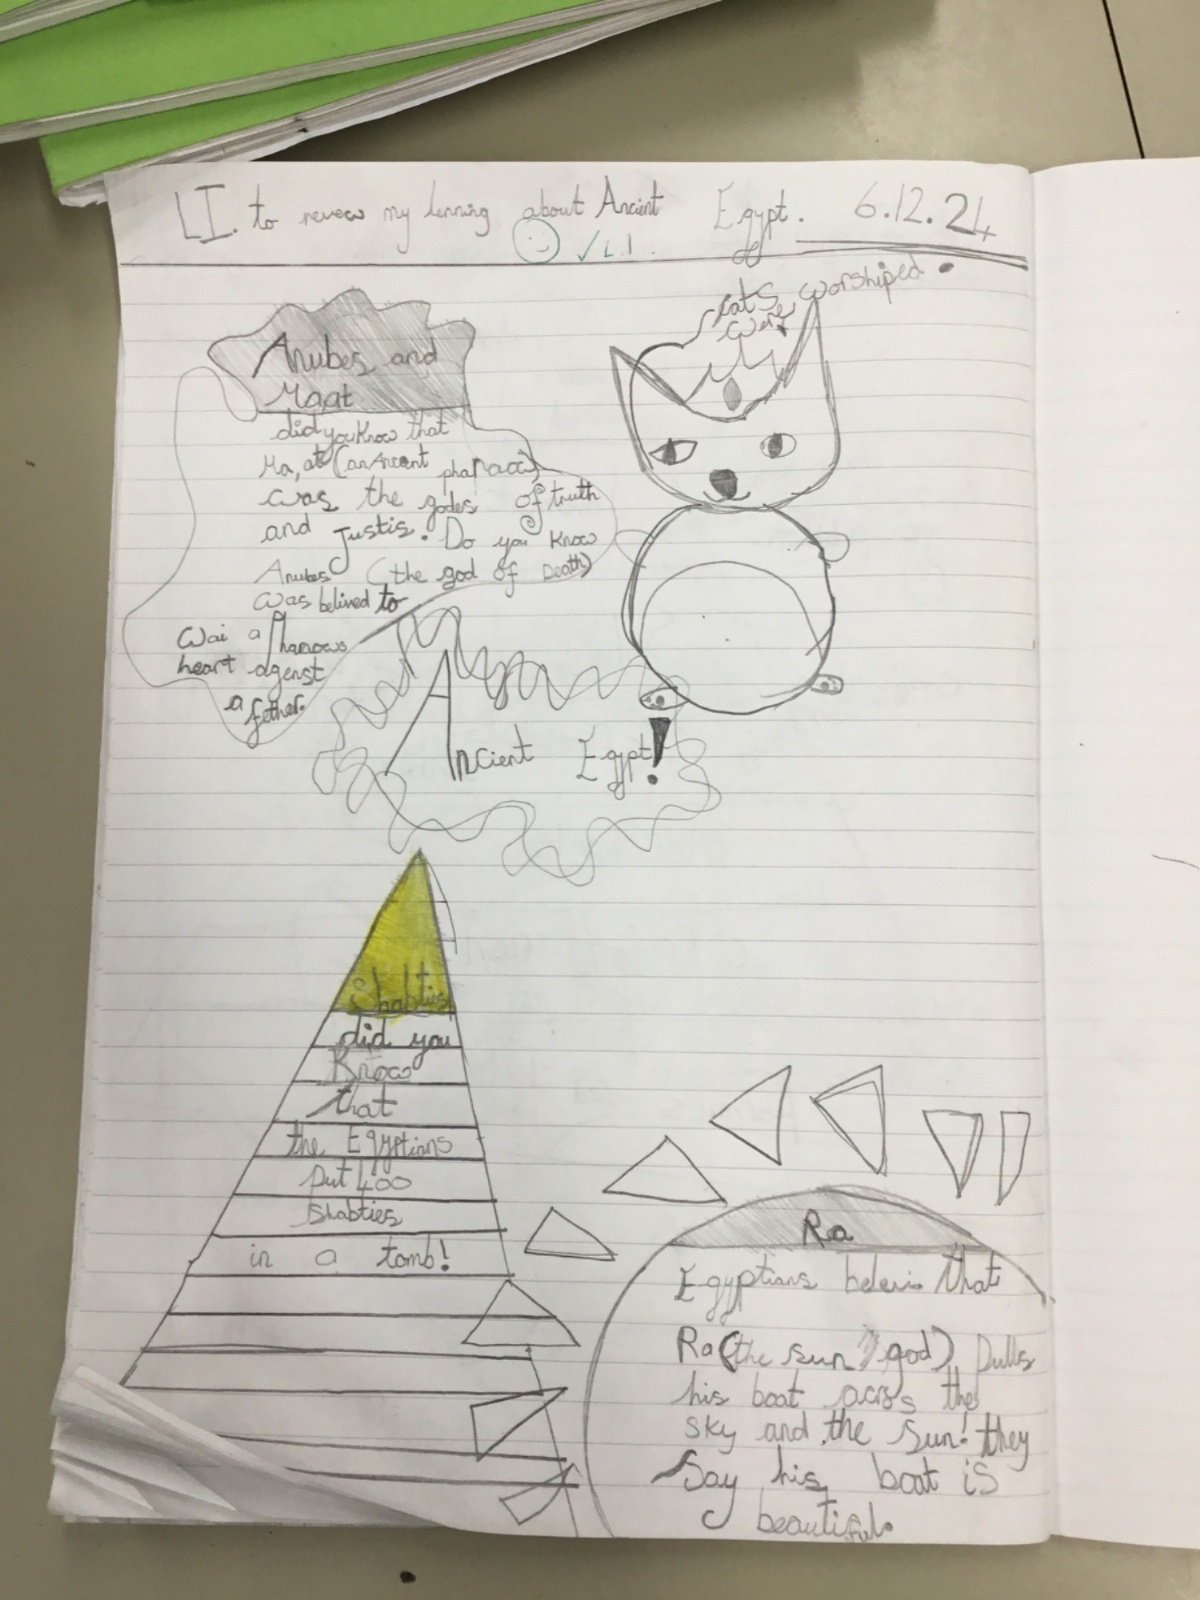 LI. to review my lerning about Ancient Egypt. 6.12.24
✓ L.I.
cats worshiped.
were
Anubes and
Maat
did you know that
Ma,at (an Ancent pharaoc)
was the godes of truth
and Justis. Do you know
Anubes (the god of Death)
was belived to
wai a Pharrows
heart agenst
a fether.
Ancient Egypt!
Shabties
did you
Know
that
the Egyptians
put 400
Shabties
in a tomb!
Ra
Egyptians that
Ra (the sun god) Pulls
his boat acrs the
sky and the sun! they
Say his boat is
beautiful.